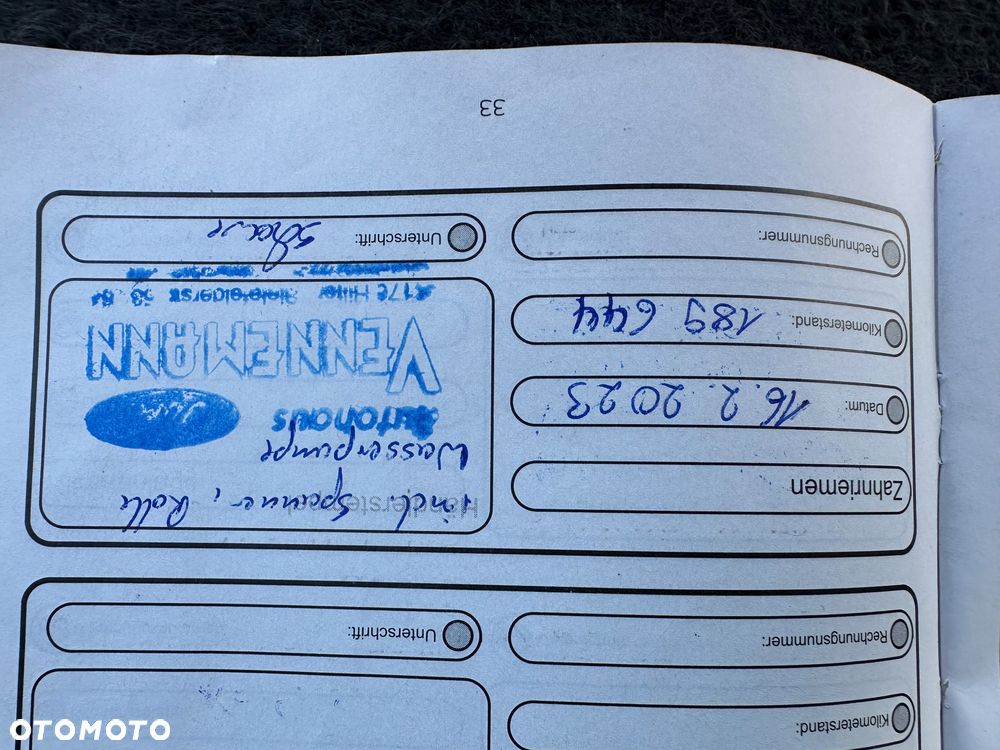 Kilometerstand:
Rechnungsnummer:
Unterschrift:
Zahnriemen
Datum: 16.2.2023
Kilometerstand: 189 644
Rechnungsnummer:
incl. Spanner, Rolle
Wasserpumpe
Autohaus
VENNEMANN
Hilter
Unterschrift:
33
OTOMOTO